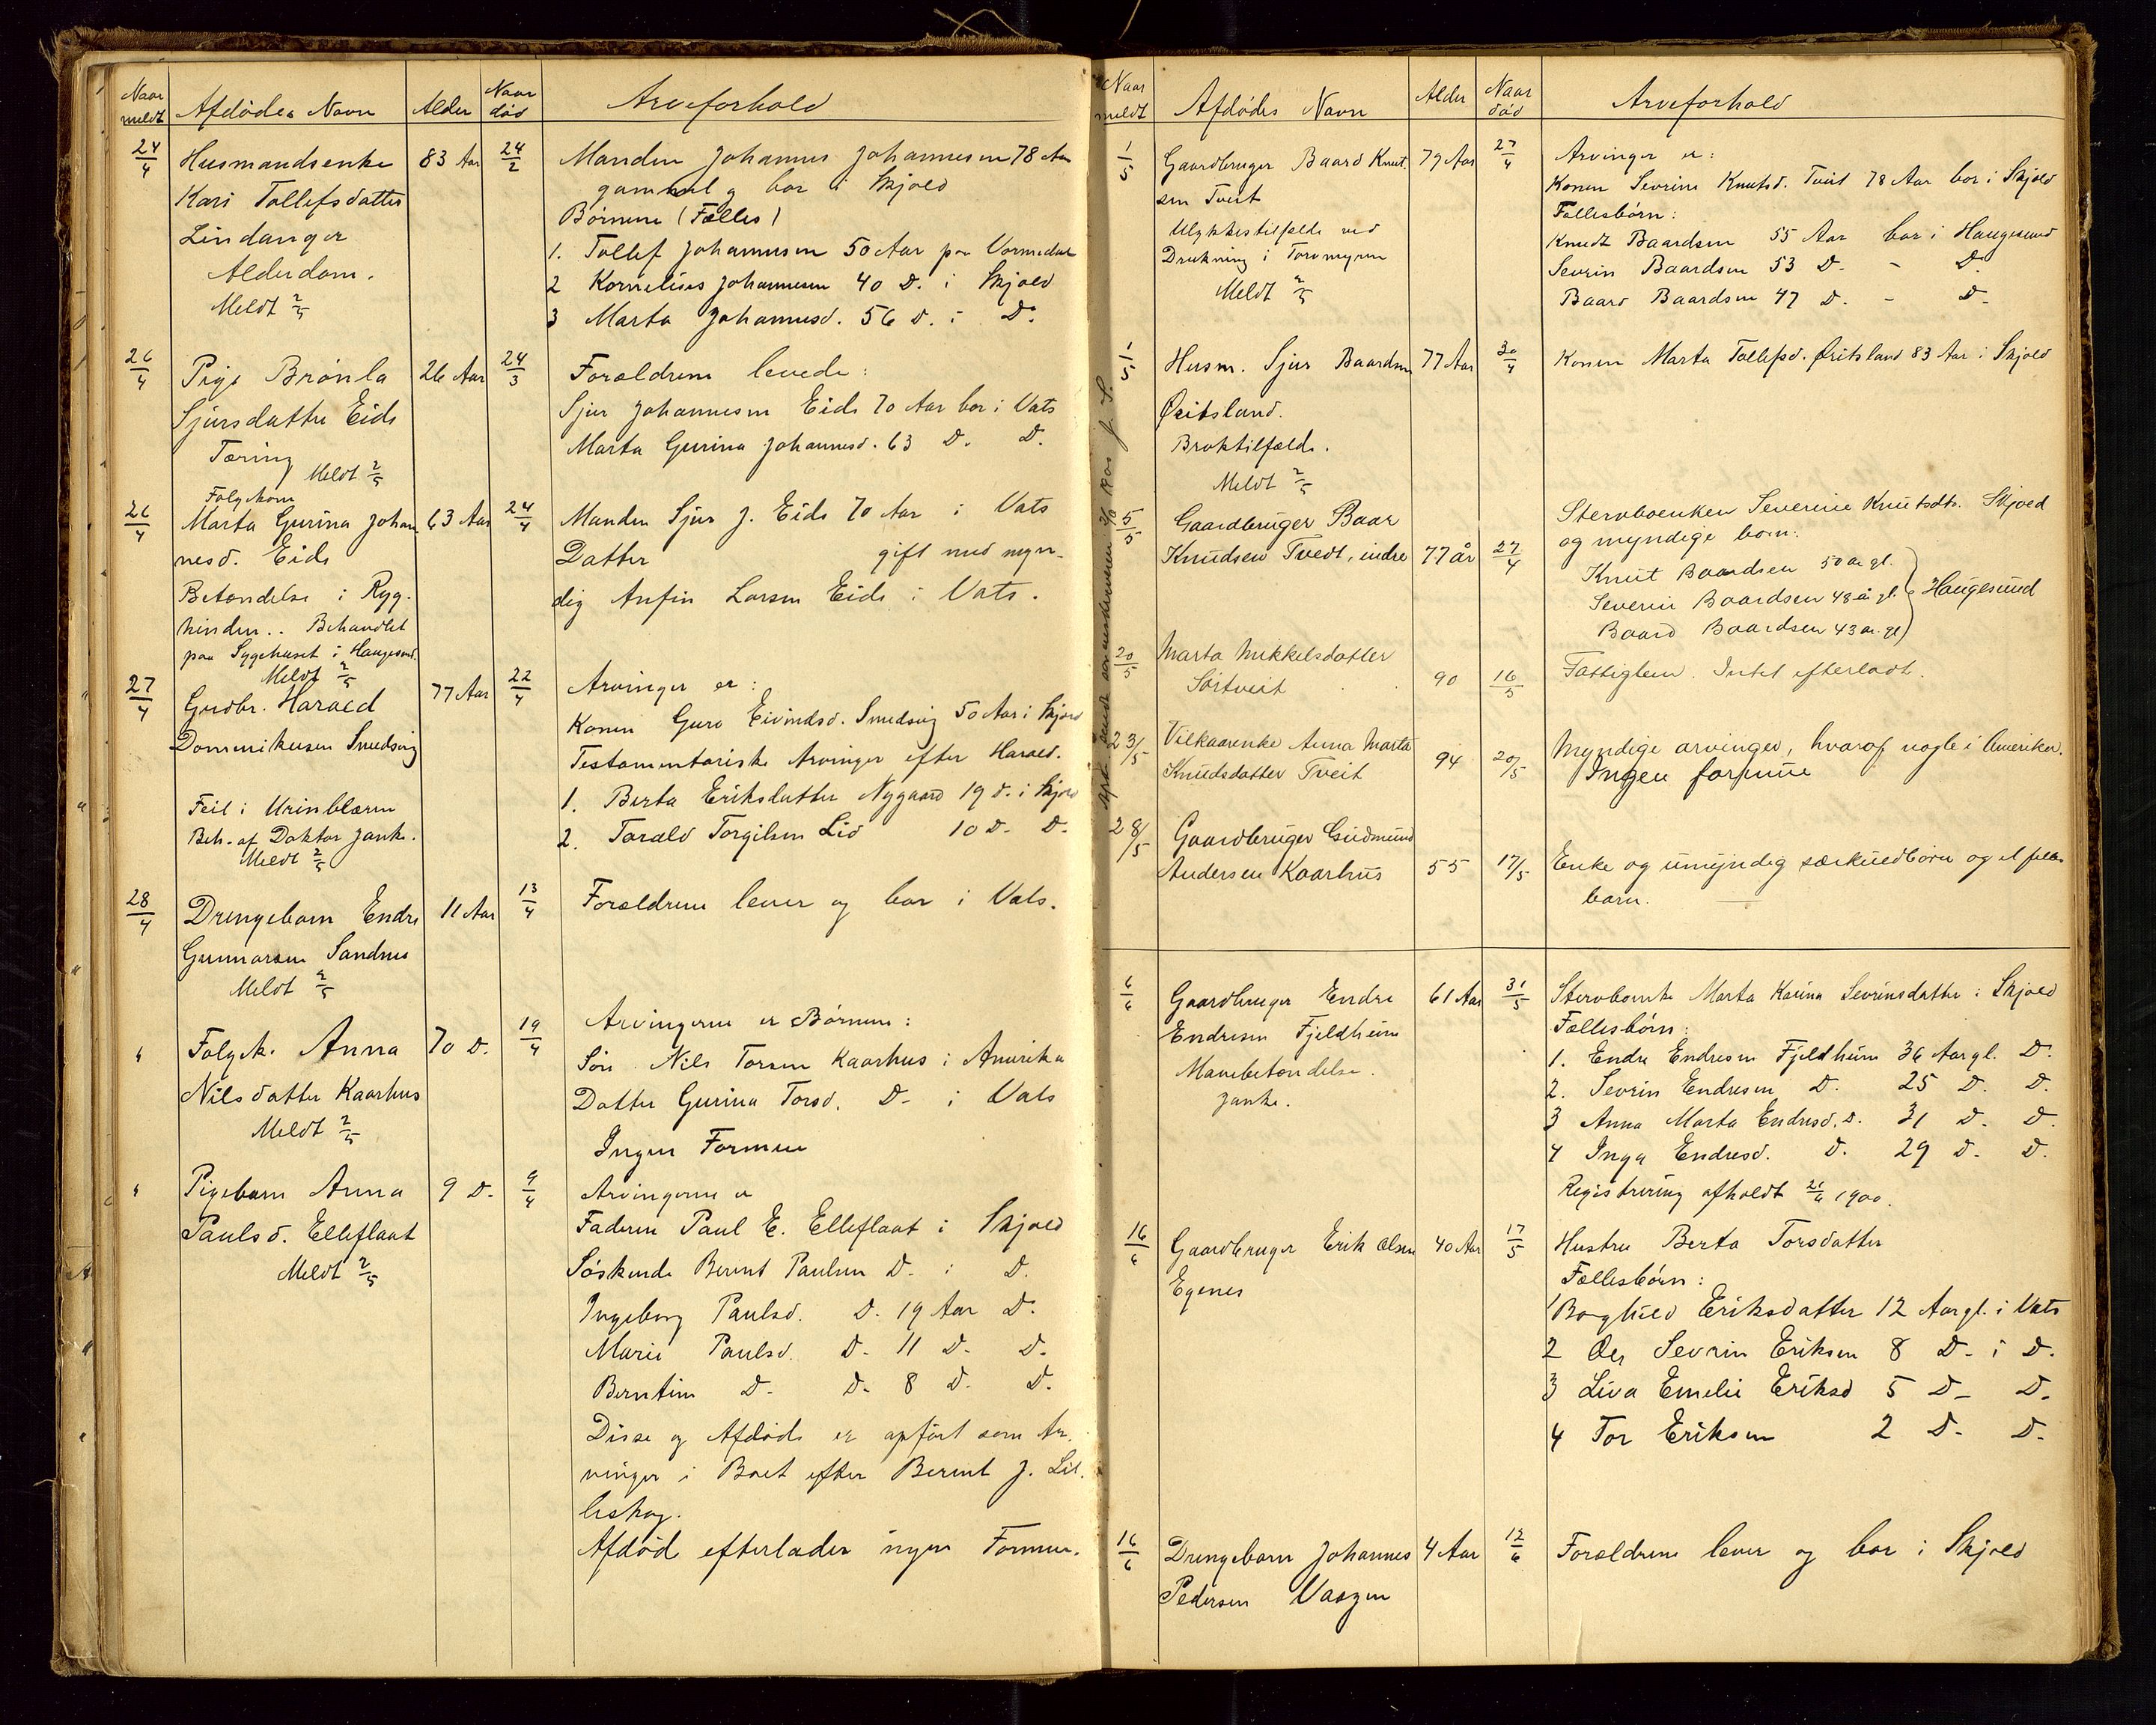 Naar meldt Afdødes Navn Alder Naar død Arveforhold
24/4 Husmandsenke 83 Aar 24/2 Manden Johannes Johannesen 78 Aar
Kari Tollefsdatter gammel og bor i Skjold
Lindanger Børnene (Fælles)
Alderdom. 1. Tollef Johannesen 50 Aar paa Vormedal
Meldt 2/5 2 Kornelius Johannesen 40 D. i Skjold
3 Marta Johannesd. 56 D. i D.
26/4 Pige Brønla 26 Aar 24/3 Forældrene levede:
Sjursdatter Eide Sjur Johannesen Eide 70 Aar bor i Vats
Tæring Marta Gurina Johannesd. 63 D. D.
Meldt 2/5
Folgekone
26/4 Marta Gurina Johan 63 Aar 24/4 Manden Sjur J. Eide 70 Aar i Vats
nesd. Eide Datter gift med myn-
Betændelse i Ryg- dig Anfin Larsen Eide i Vats.
hinden.. Behandlet
paa Sygehuset i Haugesund.
Meldt 2/5
27/4 Grdbr. Harald 77 Aar 22/4 Arvinger er:
Dominikusen Smedsvig Konen Guro Eivindsd. Smedsvig 50 Aar i Skjold
Testamentariske Arvinger efter Harald.
Feil i Urinblæren 1. Berta Eriksdatter Nygaard 19 D. i Skjold
Beh. af Doktor Janke. 2. Torald Torgilsen Lid 10 D. D.
Meldt 2/5
28/4 Drengebarn Endre 11 Aar 13/4 Forældrene lever og bor i Vats.
Gunnarsen Sandnes
Meldt 2/5
" Folgek. Anna 70 D. 19/4 Arvingerne er Børnene:
Nilsdatter Kaarhus Søn Nils Torsen Kaarhus i Amerika
Meldt 2/5 Datter Gurina Torsd. D. i Vats
Ingen Formue
" Pigebarn Anna 9 D. 9/4 Arvingerne er
Paulsd. Elleflaat Faderen Paul E. Elleflaat i Skjold
Meldt 2/5 Søskende Berent Paulsen D. i D.
Ingeborg Paulsd. D. 19 Aar D.
Marie Paulsd. D. 11 D. D.
Berntine D. D. 8 D. D.
Disse og Afdøde er opført som Ar-
vinger i Boet efter Berent J. Lil-
leskog.
Afdød efterlader ingen Formue.
Naar meldt Afdødes Navn Alder Naar død Arveforhold
1/5 Gaardbruger Baard Knut- 79 Aar 27/4 Arvinger er:
sen Tveit Konen Sevrine Knutsd. Tveit 78 Aar bor i Skjold
Ulykkestilfælde ved Fællesbørn:
Drukning i Torvmyren Knudt Baardsen 55 Aar bor i Haugesund
Meldt 2/5 Sevrin Baardsen 53 D. - D.
Baard Baardsen 47 D. - D.
1/5 Husm. Sjur Baardsen 77 Aar 30/4 Konen Marta Tollefsd. Øritsland 83 Aar i Skjold
Øritsland.
Broktilfælde.
Meldt 2/5
5/5 Gaardbruger Baar Stervboenken Severine Knutsdtr. Skjold
Knudsen Tvedt, indre 77 år 27/4 og myndige born:
Knut Baardsen 50 år gl.
Severin Baardsen 48 år gl. Haugesund
Baard Baardsen 43 år gl
20/5 Marta Mikkelsdatter
Sørtveit 90 16/5 Fattiglem. Intet efterladt.
23/5 Vilkaarenke Anna Marta 94 20/5 Myndige arvinger, hvoraf nogle i Amerika.
Knudsdatter Tveit Ingen formue
28/5 Gaardbruger Gudmund
Andersen Kaarhus 55 17/5 Enke og umyndig særkuldbörn og et fælles
barn.
6/6 Gaardbruger Endre 61 Aar 31/5 Stervboenke Marta Karina Sevrinsdatter i Skjold
Endresen Fjeldheim Fællesbørn:
Mavebetændelse. 1. Endre Endresen Fjeldheim 36 Aar gl. D.
Janke. 2. Sevrin Endresen D. 25 D. D.
3 Anna Marta Endresd. D. 31 D. D.
4 Inga Endresd. D. 29 D. D.
Registrering afholdt 21/6 1900.
16/6 Gaardbruger Erik Olsen 40 Aar 17/5 Hustru Berta Torsdatter
Egenes Fællesbørn:
1 Borghild Eriksdatter 12 Aar gl. i Vats
2 Ole Sevrin Eriksen 8 D. i D.
3 Liva Emelie Eriksd 5 D. D.
4 Tor Eriksen 2 D. D.
16/6 Drengebarn Johannes 4 Aar 12/6 Forældrene lever og bor i Skjold
Pedersen Vaagen